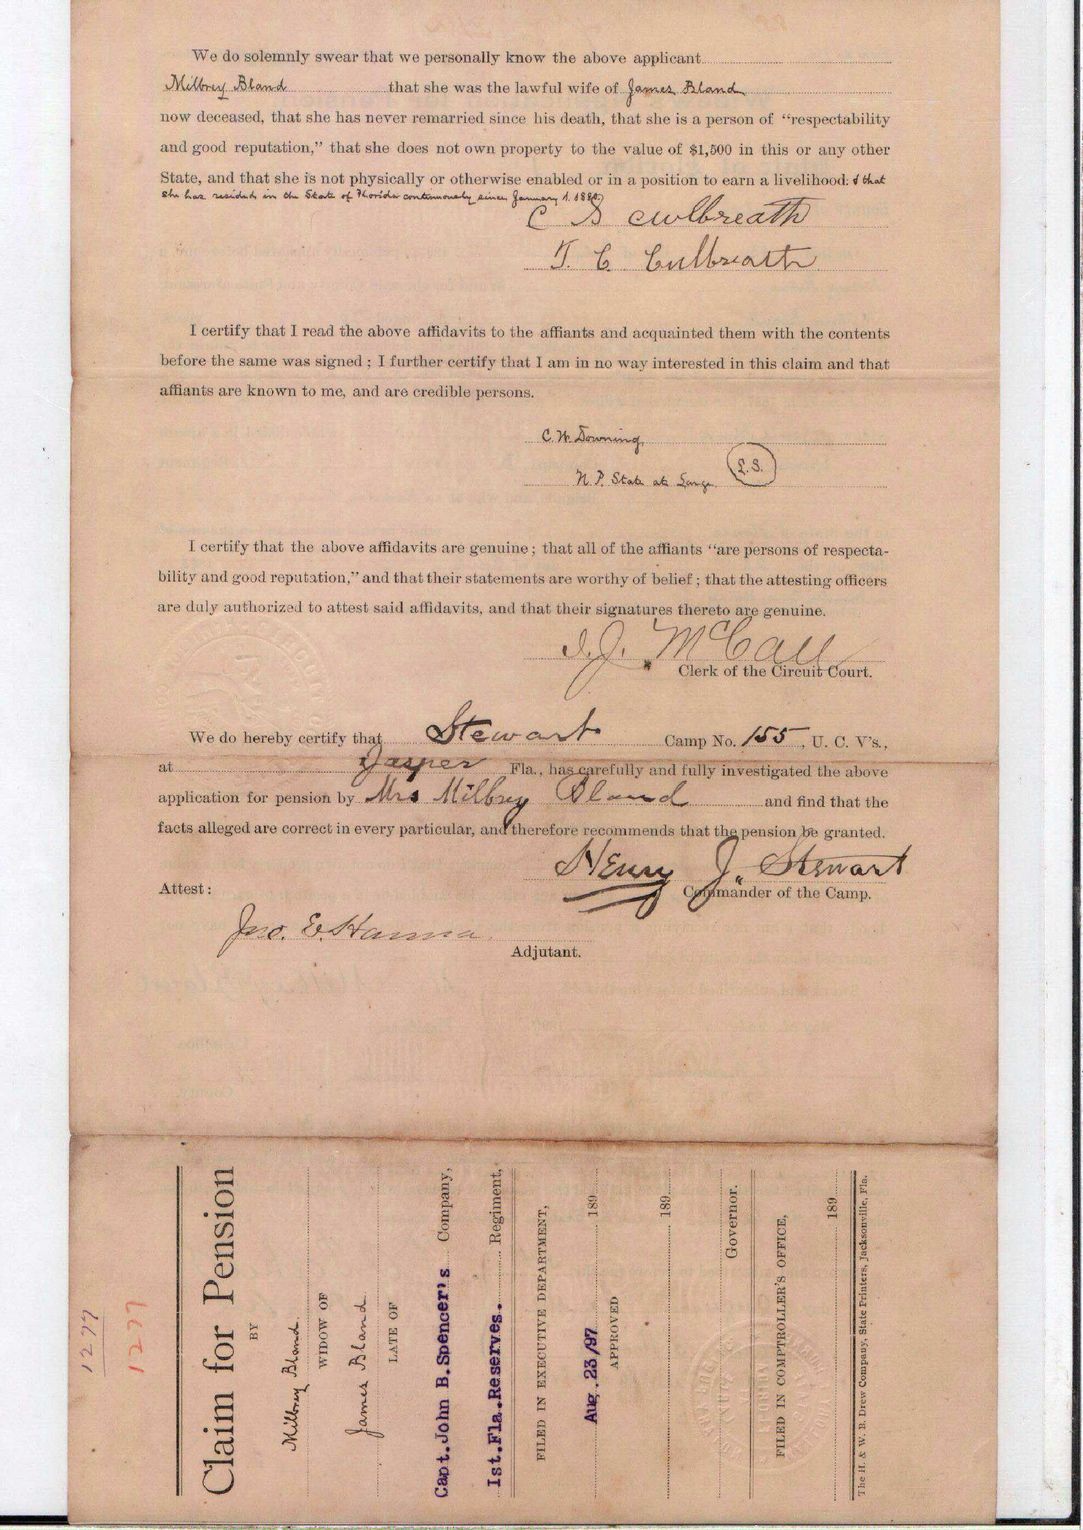 We do solemnly swear that we personally know the above applicant
Milbrey Bland that she was the lawful wife of James Bland
now deceased, that she has never remarried since his death, that she is a person of “respectability
and good reputation,” that she does not own property to the value of $1,500 in this or any other
State, and that she is not physically or otherwise enabled or in a position to earn a livelihood: & that
she has resided in the State of Florida continuously since January 1. 1880.
C S Culbreath
T. C. Culbreath
I certify that I read the above affidavits to the affiants and acquainted them with the contents
before the same was signed ; I further certify that I am in no way interested in this claim and that
affiants are known to me, and are credible persons.
C. W. Downing,
N. P. State at Large L.S.
I certify that the above affidavits are genuine ; that all of the affiants “are persons of respecta-
bility and good reputation,” and that their statements are worthy of belief ; that the attesting officers
are duly authorized to attest said affidavits, and that their signatures thereto are genuine.
J. McCall
Clerk of the Circuit Court.
We do hereby certify that Stewart Camp No. 155, U. C. V's.,
at Jasper Fla., has carefully and fully investigated the above
application for pension by Mrs Milbrey Bland and find that the
facts alleged are correct in every particular, and therefore recommends that the pension be granted.
Henry J. Stewart
Attest : Commander of the Camp.
Jno. E. Hanna
Adjutant.
1277
1277
Claim for Pension
BY
Milbrey Bland.
WIDOW OF
James Bland
LATE OF
Capt. John B. Spencer's Company,
1st. Fla. Reserves. Regiment,
FILED IN EXECUTIVE DEPARTMENT,
Aug. 23/97 189
APPROVED
189
Governor.
FILED IN COMPTROLLER'S OFFICE,
189
The H. & W. B. Drew Company, State Printers, Jacksonville, Fla.